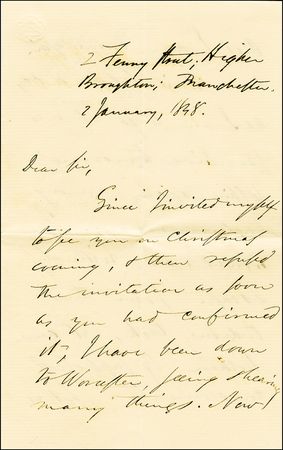 2 Fenny Street, Higher
Broughton, Manchester.
2 January, 1898.
Dear Sir,
Since I invited myself
to see you on Christmas
evening, & then refused
the invitation as soon
as you had confirmed
it, I have been down
to Worcester, seeing & hearing
many things. Now